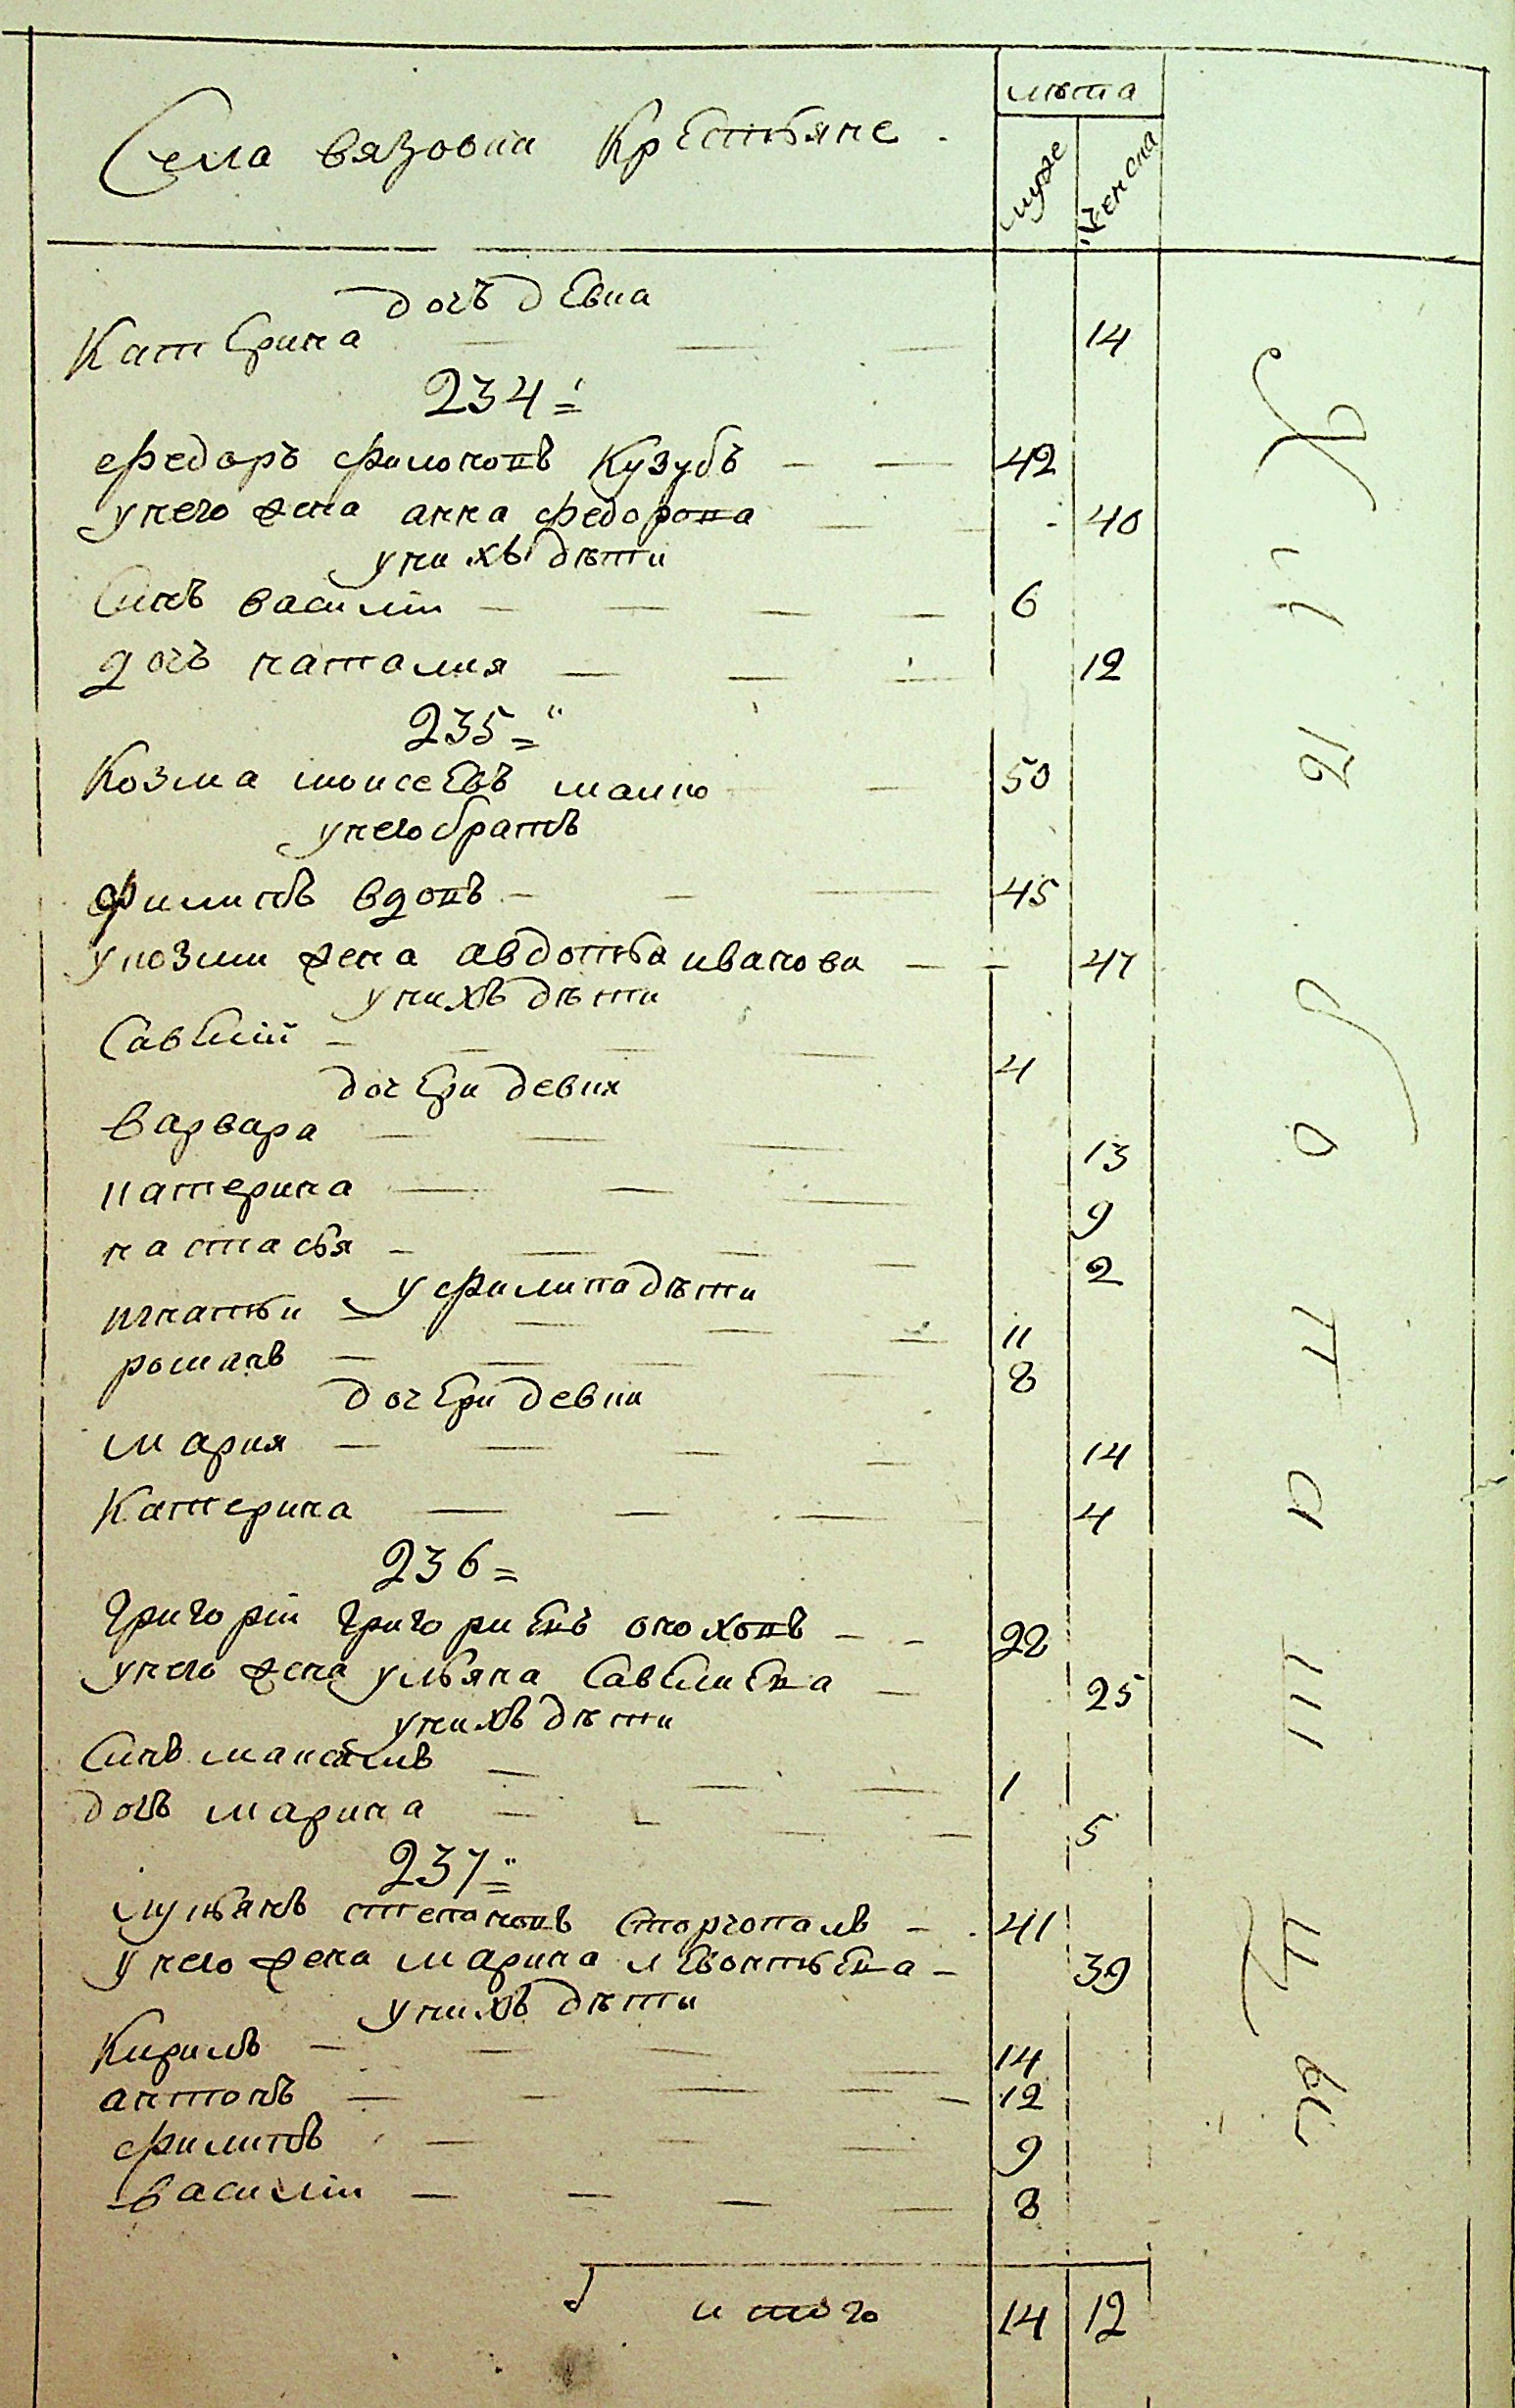 Села вязовки крестьяне
лѣта
муже
женска
дочъ девка
Катерина 14
234
Федоръ филоновъ Кузубъ 42
унего жена анна федорова 40
унихъ дѣти
Синъ василии 6
дочъ наталия 12
235
Козма моисеевъ
50
унего братъ
Филипъ вдовъ 45
укозми жена авдотья иванова 47
унихъ дѣти
Савелий 4
дочери девки
варвара 13
катерина 9
настасья 2
у филипа дѣти
игнатьи 11
романъ 8
дочери девки
мария 14
Катерина 4
236
Григории григориевъ 22
унего жена ульяна савелиева 25
унихъ дѣти
Синъ 1
дочъ марина 5
237
лукьянъ степановъ 41
унего жена марина левонтьева 39
унихъ дѣти
Кирилъ 14
антонъ 12
филипъ 9
василии 8
итого 14 12